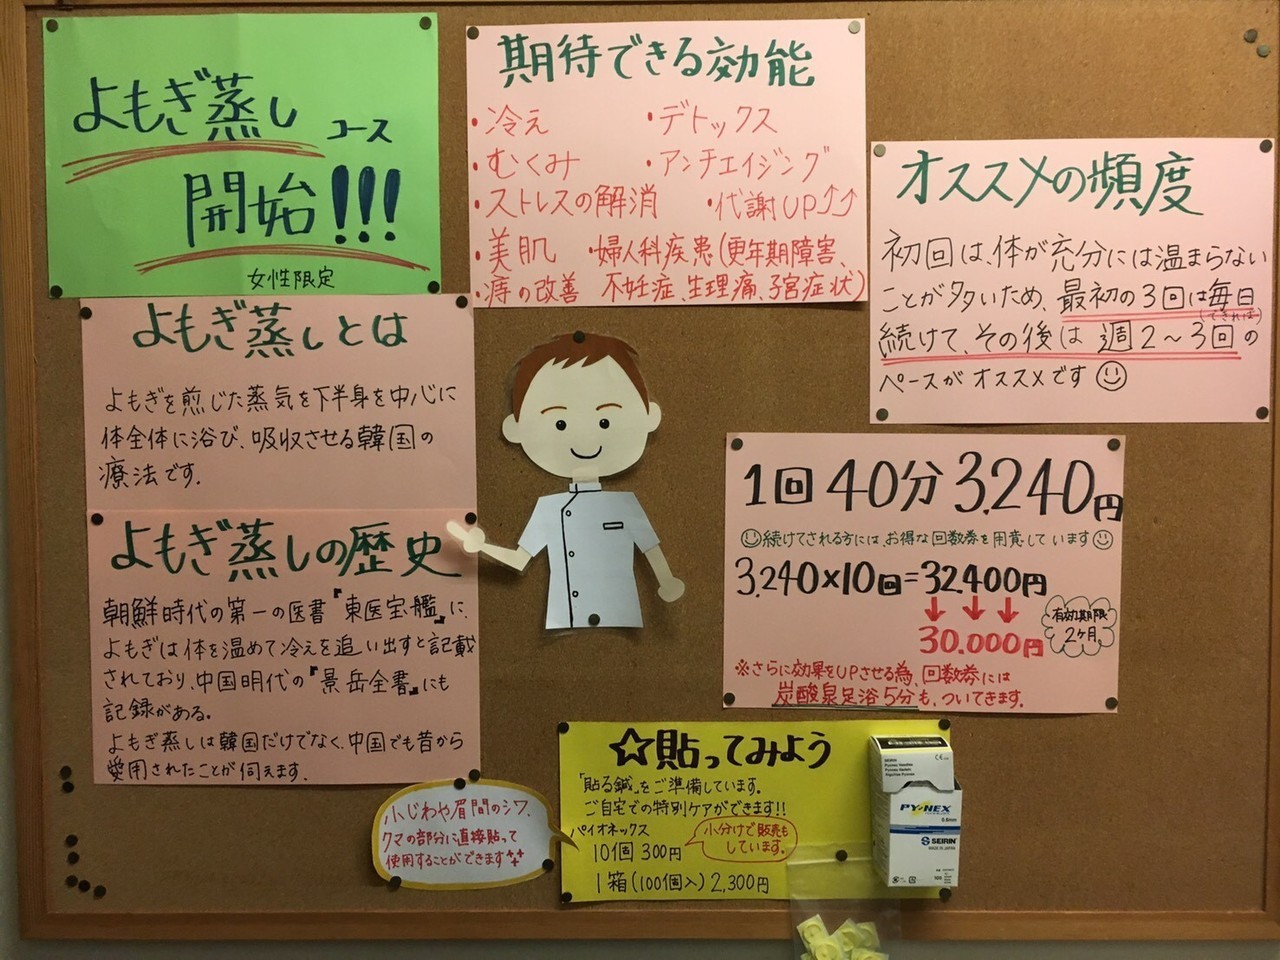 よもぎ蒸しコース
開始!!!
女性限定
期待できる効能
・冷え
・デトックス
・むくみ
・アンチエイジング
・ストレスの解消
・代謝UP⤴⤴
・美肌
・婦人科疾患(更年期障害、
・痔の改善
不妊症、生理痛、子宮症状)
オススメの頻度
初回は、体が充分には温まらない
ことが多いため、最初の3回は毎日
(できれば)
続けて、その後は週2～3回の
ペースがオススメです☺
よもぎ蒸しとは
よもぎを煎じた蒸気を下半身を中心に
体全体に浴び、吸収させる韓国の
療法です.
よもぎ蒸しの歴史
朝鮮時代の第一の医書『東医宝艦』に、
よもぎは体を温めて冷えを追い出すと記載
されており、中国明代の『景岳全書』にも
記録がある。
よもぎ蒸しは韓国だけでなく、中国でも昔から
愛用されたことが伺えます.
1回40分 3,240円
☺続けてされる方には、お得な回数券を用意しています☺
3,240×10回=32.400円
↓↓↓
30.000円
有効期限
2ヶ月
※さらに効果をUPさせる為、回数券には
炭酸泉足浴5分も、ついてきます.
☆貼ってみよう
「貼る鍼」をご準備しています.
ご自宅での特別ケアができます!!
パイオネックス
10個 300円
小分けで販売も
しています.
1箱(100個入) 2,300円
小じわや眉間のシワ、
クマの部分に直接貼って
使用することができます
SEIRIN
PYONEX
0.6mm
SEIRIN
MADE IN JAPAN